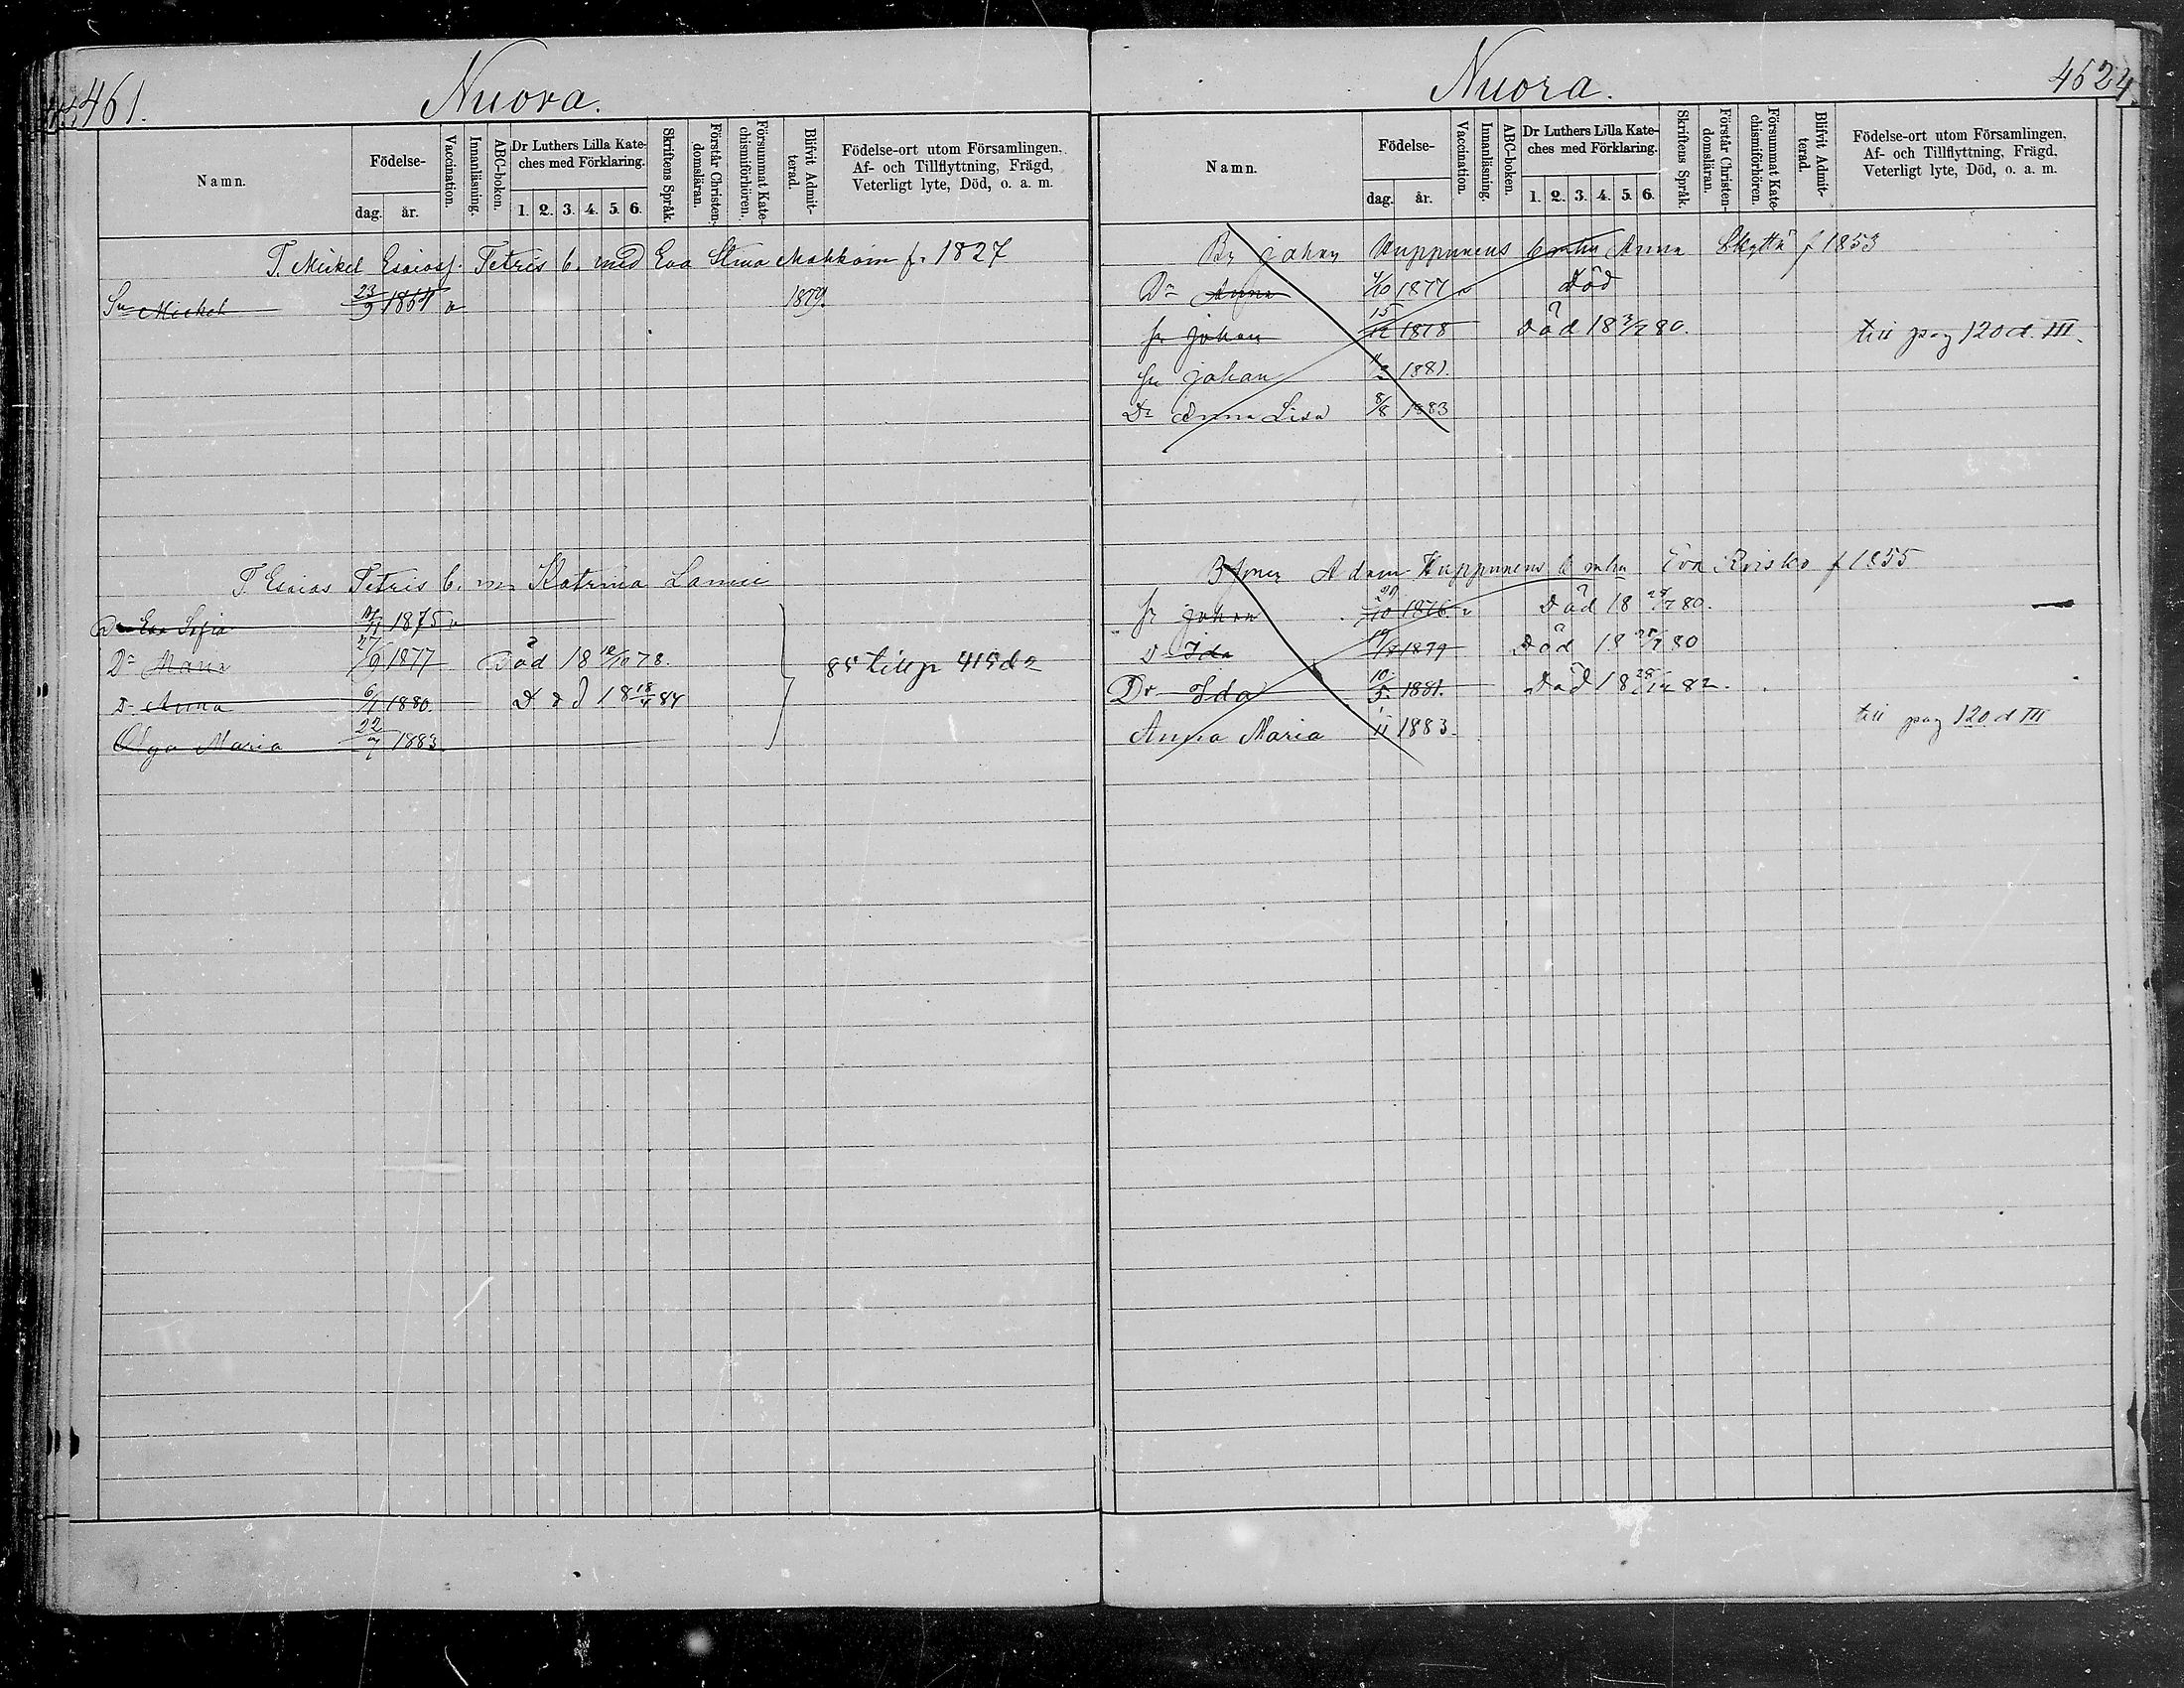 461.
Nuora.
Namn.
Födelse-
dag. år.
Vaccination.
Innanläsning.
ABC-boken.
Dr Luthers Lilla Kate-
ches med Förklaring.
1. 2. 3. 4. 5. 6.
Skriftens Språk.
Förstår Christen-
domsläran.
Försummat Kate-
chismiförhören.
Blifvit Admit-
terad.
Födelse-ort utom Församlingen,
Af- och Tillflyttning, Frägd,
Veterligt lyte, Död, o. a. m.
T. Mickel Esaiass. Tetris b. med Eva Stina f. 1827
Sn Mickel 23/9 1851 v 1879.
T. Esaias Tetris b. m Katrina
Dr Eva Sofia 1875 v
Dr Maria 27/9 1877 Död 18 12/10 78.
85 till p 415 d 2
Dr Anna 6/1 1880. Död 18 18/4 84
Olga Maria 22/7 1883
462
Nuora.
Namn.
Födelse-
dag. år.
Vaccination.
Innanläsning.
ABC-boken.
Dr Luthers Lilla Kate-
ches med Förklaring.
1. 2. 3. 4. 5. 6.
Skriftens Språk.
Förstår Christen-
domsläran.
Försummat Kate-
chismiförhören.
Blifvit Admit-
terad.
Födelse-ort utom Församlingen,
Af- och Tillflyttning, Frägd,
Veterligt lyte, Död, o. a. m.
Br Johan Huppunens b mhu Anna Skyttä f 1853
Dr Anna 4/10 1877 v Död
Sn Johan 15/12 1878 Död 18 3/7 80.
till pag 120 d. III.
Sn Johan 11/2 1881.
Dr Anna Lisa 8/8 1883
Adam Huppunens b mhu Eva Risko f 1855
Sn Johan 1876 v Död 18 28/7 80.
D Ida 1879 Död 18 80
Dr Ida 10/5 1881. Död 18 28/12 82.
till pag 120 d III
Anna Maria 1/11 1883.